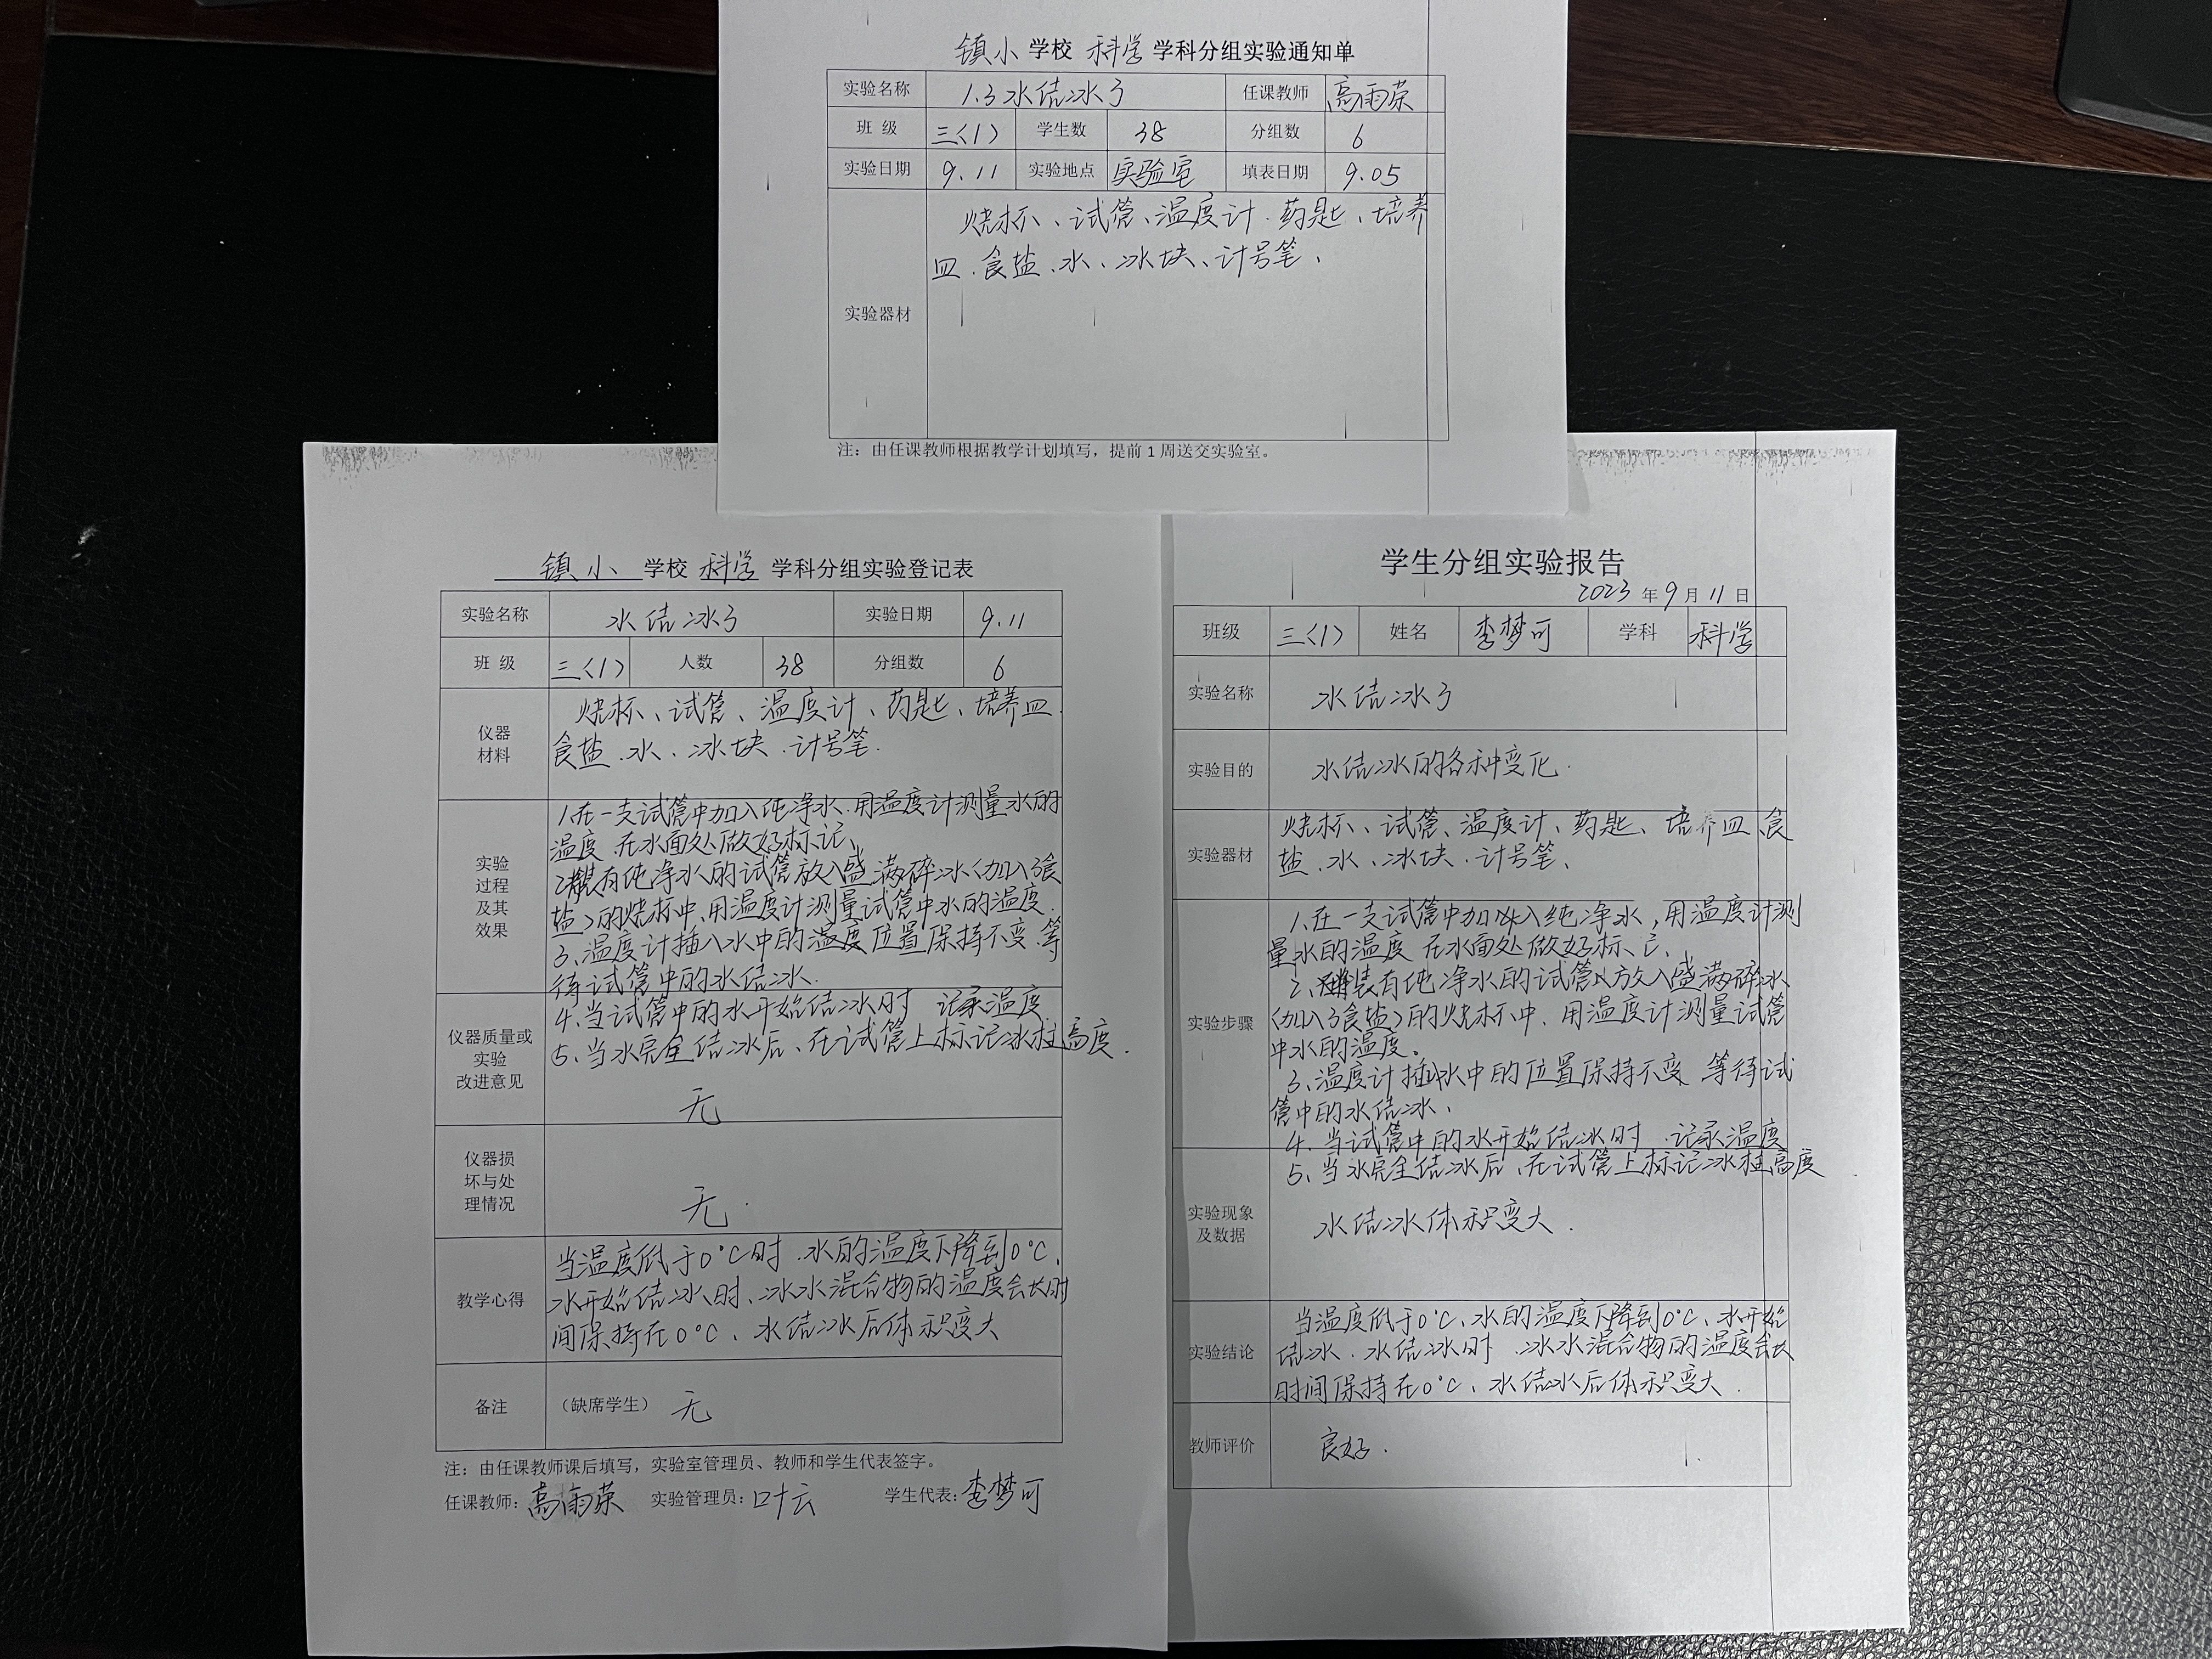 镇小 学校 科学 学科分组实验通知单
实验名称 1.3水结冰了 任课教师 高雨荣
班 级 三〈1〉 学生数 38 分组数 6
实验日期 9.11 实验地点 实验室 填表日期 9.05
烧杯、试管、温度计.药匙、培养
皿.食盐、水、冰块、计号笔、
实验器材
注：由任课教师根据教学计划填写，提前 1 周送交实验室。
镇小 学校 科学 学科分组实验登记表
实验名称 水结冰了 实验日期 9.11
班 级 三〈1〉 人数 38 分组数 6
仪器
材料
烧杯、试管、温度计、药匙、培养皿.
食盐.水、冰块.计号笔.
实验
过程
及其
效果
1.在一支试管中加入纯净水.用温度计测量水的
温度 在水面处做好标记、
2.装有纯净水的试管放入盛满碎冰〈加入了食
盐〉的烧杯中、用温度计测量试管中水的温度.
3、温度计插入水中的温度位置保持不变.等
待试管中的水结冰.
4、当试管中的水开始结冰时 记录温度
5、当水完全结冰后、在试管上标记冰柱高度.
仪器质量或
实验
改进意见
无
仪器损
坏与处
理情况
无.
教学心得
当温度低于0°C时.水的温度下降到0°C、
水开始结冰时、冰水混合物的温度会长时
间保持在0°C、水结冰后体积变大
备注 （缺席学生） 无
注：由任课教师课后填写，实验室管理员、教师和学生代表签字。
任课教师：高雨荣 实验管理员：叶云 学生代表：李梦可
学生分组实验报告
2023 年 9 月 11 日
班级 三〈1〉 姓名 李梦可 学科 科学
实验名称 水结冰了
实验目的 水结冰的各种变化.
实验器材
烧杯、试管、温度计、药匙、培养皿、食
盐.水、冰块.计号笔、
实验步骤
1.在一支试管中加入纯净水，用温度计测
量水的温度 在水面处做好标记.
2、装有纯净水的试管放入盛满碎冰
〈加入了食盐〉的烧杯中、用温度计测量试管
中水的温度。
3、温度计插水中的位置保持不变 等待试
管中的水结冰、
4.当试管中的水开始结冰时.记录温度
5、当水完全结冰后、在试管上标记冰柱高度
实验现象
及数据
水结冰体积变大.
实验结论
当温度低于0°C、水的温度下降到0°C、水开始
结冰.水结冰时.冰水混合物的温度会长
时间保持在0°C、水结冰后体积变大.
教师评价 良好.